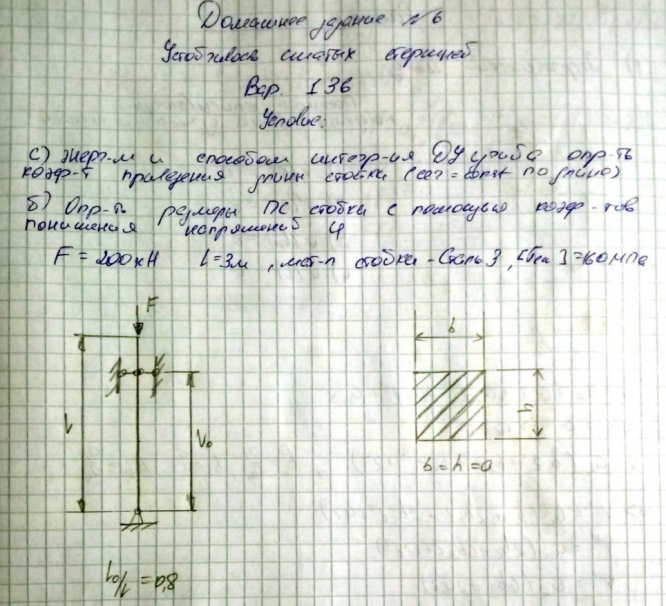 Домашнее задание №6
Устойчивость сжатых стержней
Вар. 136
Условие:
а) энерг-м и способом интегр-ия ДУ изгиба опр-ть
коэф-т приведения длины стойки (сеч = const по длине)
б) Опр-ть размеры ПС стойки с помощью коэф-тов
понижения напряжений φ
F = 200кН l=3м , мат-л стойки - Сталь 3 , [σсж] = 160мПа
F
b
l
l₀
h
b = h = a
l₀/l = 0,8